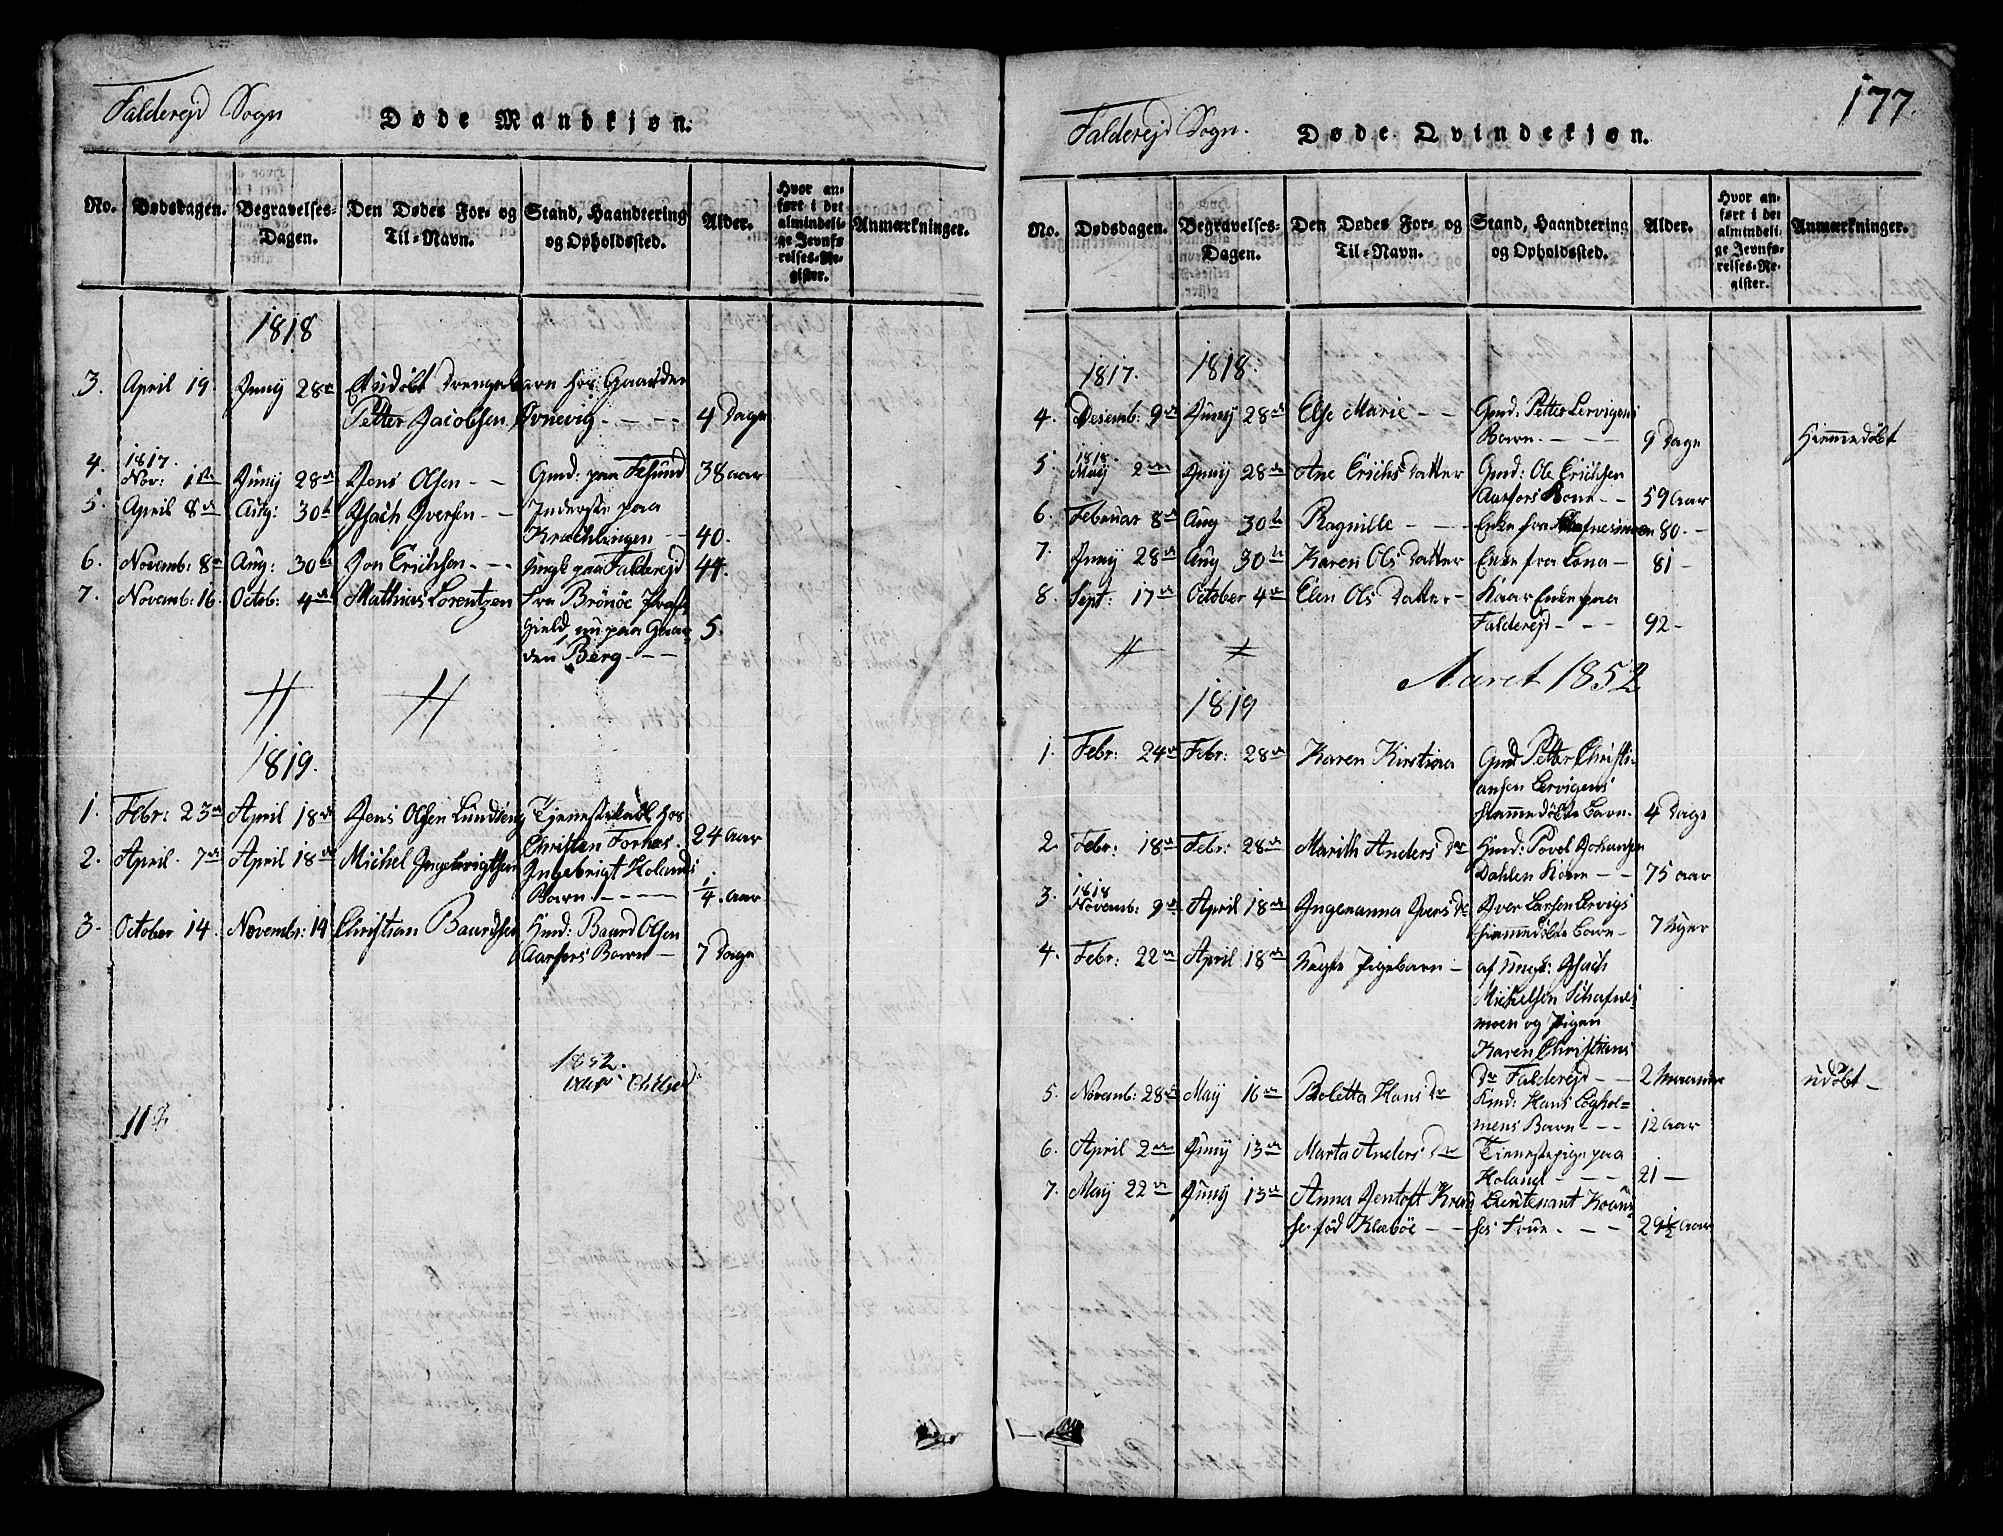 Falderejd Sogn
Døde Mandkjøn.
No. Dødsdagen. Begravelses-Dagen. Den Dødes For- og Til-Navn. Stand, Haandtering og Opholdssted. Alder. Hvor anført i det almindelige Jevnførelses-Register. Anmærkninger.
1818
3. April 19. Juny 28de Drengebarn hos Gaardm
Petter Jacobsen 4 Dage
4. 1817. Nov: 1ste Juny 28de Jens Olsen Gmd: paa 38 aar
5. April 8de Aug: 30te Isach Iversen Inderste paa
40.
6. Novemb: 8de Aug: 30te Jon Erichsen paa Falderejd 44.
7. Novemb: 16. Octob: 4de Mathias Lorentzen fra Brönöe Præste
Gield, nu paa Gaar- 5.
den Berg
1819.
1. Febr: 23de April 18de Jens Olsen Lundseng Tienestekarl hos
Christen Fornæs. 24 aar
2. April 7de April 18de Michel Ingebrigtsen Ingebrigt Holands
Barn 1/4. aar
3. October 14. Novembr: 14 Christian Baardsen Hmd: Baard Olsen
Aarsors Barn 7 Dage
1852.
Falderejd Sogn.
Døde Qvindekjøn.
177.
No. Dødsdagen. Begravelses-Dagen. Den Dødes For- og Til-Navn. Stand, Haandtering og Opholdssted. Alder. Hvor anført i det almindelige Jevnførelses-Register. Anmærkninger.
1817. 1818.
4. Desemb: 9de Juny 28de Else Marie Gmd: Petter Lervigens
Barn. 9 Dage Hiemmedöbt
5. 1818 May 2den Juny 28de Ane Erichs Datter Gmd: Ole Erichsen
Aarsors Kone 59 Aar
6. Februar 8de Aug 30te Ragnille Enke fra 80.
7. Juny 28de Aug 30te Karen Ols Datter Enke fra Lona 81
8. Sept: 17de October 4de Elen Ols Datter Kaar Enke paa
Falderejd 92
Aaret 1852
1819
1. Febr: 24de Febr: 28de Karen Kirstina Gmd Petter Christi-
ansen Lervigens
Hiemmedöbte Barn. 4 Dage
2. Febr: 18de Febr: 28de Marith Anders Dr Hmd: Povel Johansen
Dahlen Kone 75 aar
3. 1818 Novemb: 9de April 18de Ingeranna Ivers Dr Iver Larsen Lervigs
hiemmedöbte Barn 7 Uger
4. Febr: 22de April 18de Uægte Pigebarn af Ungk: Isach
Michelsen Schafnes
moen og Pigen
Karen Christians
Dr Falderejd 2 Maaneder udöbt
5. Novemb: 28de May 16de Boletta Hans Dr Hmd: Hans Löghol-
mens Barn 12 aar
6. April 2den Juny 13de Marta Anders Dr Tienestepige paa
Holand 21
7. May 22de Juny 13de Anna Jentoft Krau Lieutenant Krau-
se föd Klæböe ses Frue 29 1/2 aar